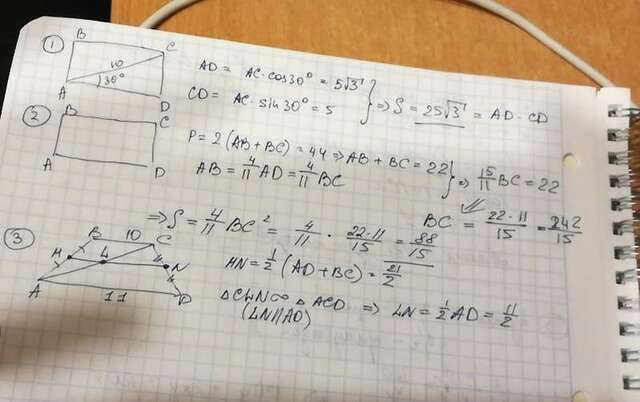 ① B C
10
30°
A D
AD = AC·cos30° = 5√3
CD = AC·sin30° = 5 } ⇒ S = 25√3 = AD·CD
② B C
A D
P = 2(AB+BC) = 44 ⇒ AB+BC = 22
AB = 4/11 AD = 4/11 BC } ⇒ 15/11 BC = 22
BC = 22·11/15 = 242/15
⇒ S = 4/11 BC² = 4/11 · 22·11/15 = 88/15
③ B 10 C
M L N
A 11 D
MN = 1/2 (AD+BC) = 21/2
△CLN ∞ △ACD ⇒ LN = 1/2 AD = 11/2
(LN||AD)